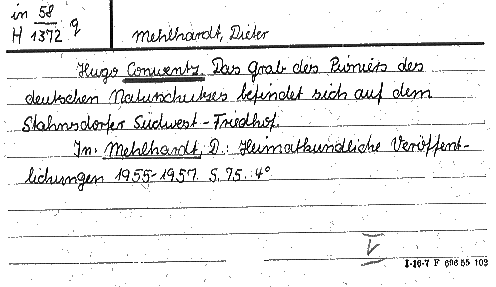 in 58
H 1372 q
Mehlhardt, Dieter
Hugo Conwentz. Das Grab des Pioniers des
deutschen Naturschutzes befindet sich auf dem
Stahnsdorfer Südwest-Friedhof.
In: Mehlhardt, D.: Heimatkundliche Veröffent-
lichungen 1955-1957. S. 75. 4°
V
I-16-7 F 696 55 102